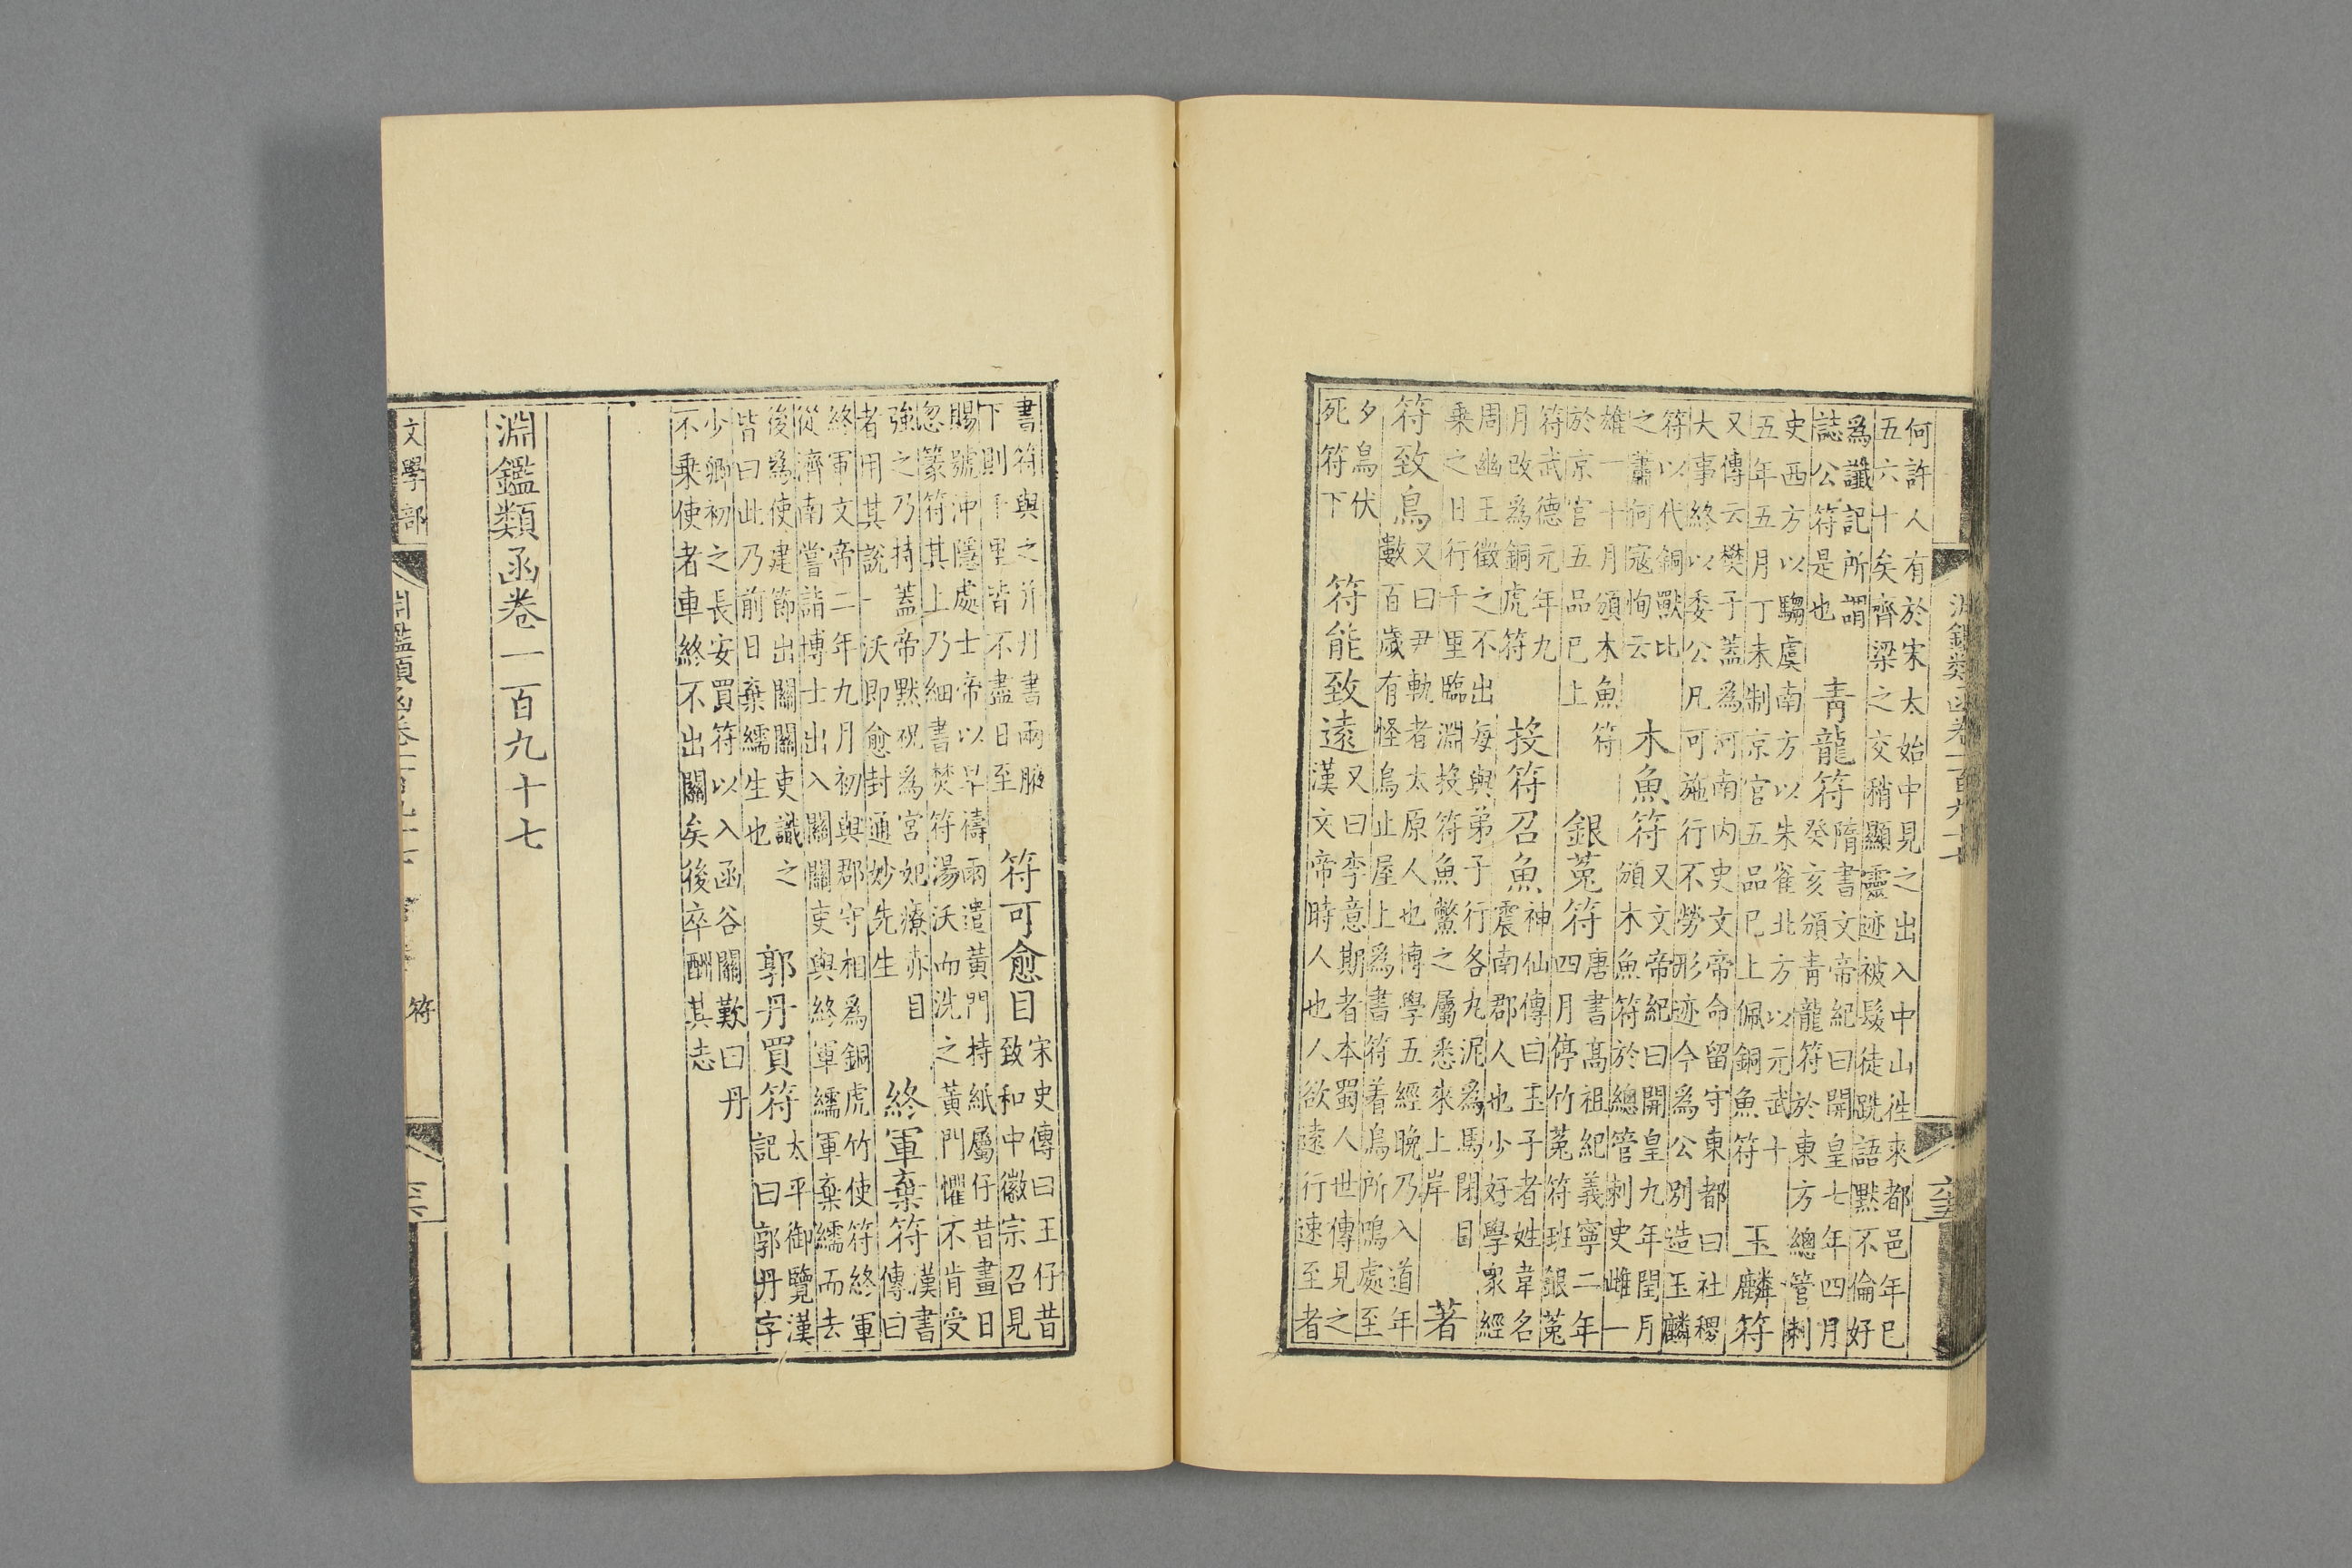 淵鑑類函卷一百九十七
何許人有於宋太始中見之出入中山徃來都邑年已
五六十矣齊梁之交稍顯靈迹被髮徒跣語默不倫好
爲讖記所謂
誌公符是也
青龍符
隋書文帝紀曰開皇七年四月
癸亥頒青龍符於東方總管刺
史西方以騶虞南方以朱雀北方以元武十
五年五月丁未制京官五品已上佩銅魚符
玉麟符
又傳云樊子蓋爲河南内史文帝命留守東都曰社稷
大事終以委公凡可施行不勞形迹今爲公別造玉麟
符以代銅獸比
之蕭何寇恂云
木魚符
又文帝紀曰開皇九年閏月
頒木魚符於總管刺史雌一
雄一十月頒木魚符
於京官五品已上
銀菟符
唐書高祖紀義寧二年
四月停竹菟符班銀菟
符武德元年九
月改爲銅虎符
投符召魚
神仙傳曰玉子者姓韋名
震南郡人也少好學衆經
周幽王徵之不出每與弟子行各九泥爲馬閉目
乗之日行千里臨淵投符魚鱉之屬悉來上岸
著
符致鳥
又曰尹軌者太原人也博學五經晚乃入道年
數百歲有怪鳥止屋上爲書符着鳥所鳴處至
夕鳥伏
死符下
符能致遠
又曰李意期者本蜀人世傳見之
漢文帝時人也人欲遠行速至者
書符與之并丹書兩腋
下則千里皆不盡日至
符可愈目
宋史傳曰王仔昔
致和中徽宗召見
賜號沖隱處士帝以旱禱雨遣黃門持紙屬仔昔畫日
忽篆符其上乃細書焚符湯沃而洗之黃門懼不肯受
強之乃持蓋帝默祝爲宮妃療赤目
者用其說一沃即愈封通妙先生
終軍棄符
漢書
傳曰
終軍文帝二年九月初與郡守相爲銅虎竹使符終軍
從濟南嘗詣博士出入關關吏與終軍繻軍棄繻而去
後爲使建節出關關吏識之
皆曰此乃前日棄繻生也
郭丹買符
太平御覽漢
記曰郭丹字
少卿初之長安買符以入函谷關歎曰丹
不乗使者車終不出關矣後卒酬其志
淵鑑類函卷一百九十七
文學部
淵鑑類函卷一百九十七
符